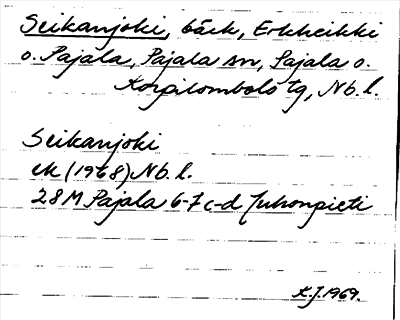 Seikanjoki, bäck, Erkheikki
o. Pajala, Pajala sn, Pajala o.
Korpilombolo tg, Nb. l.
Seikanjoki
ek (1968) Nb. l.
28M Pajala 6-7 c-d Juhonpieti
K.J. 1969.